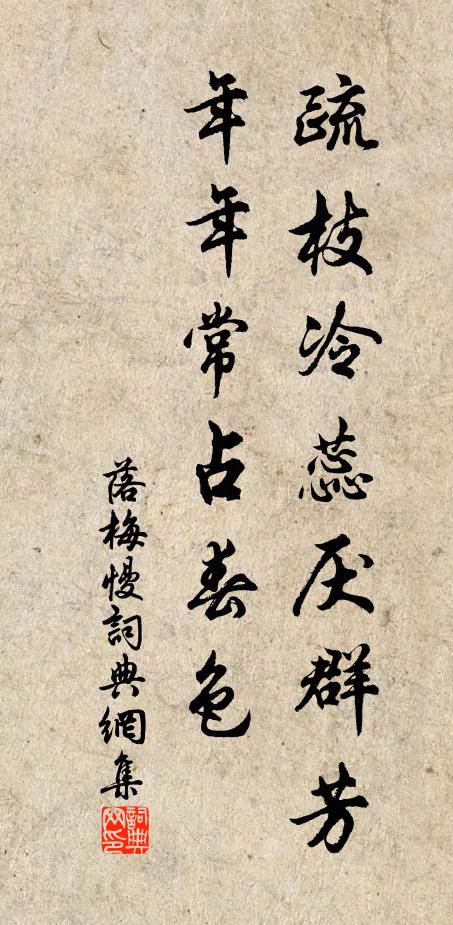 疏枝冷蕊厌群芳
年年常占春色
落梅慢詞典網集
詞典網印